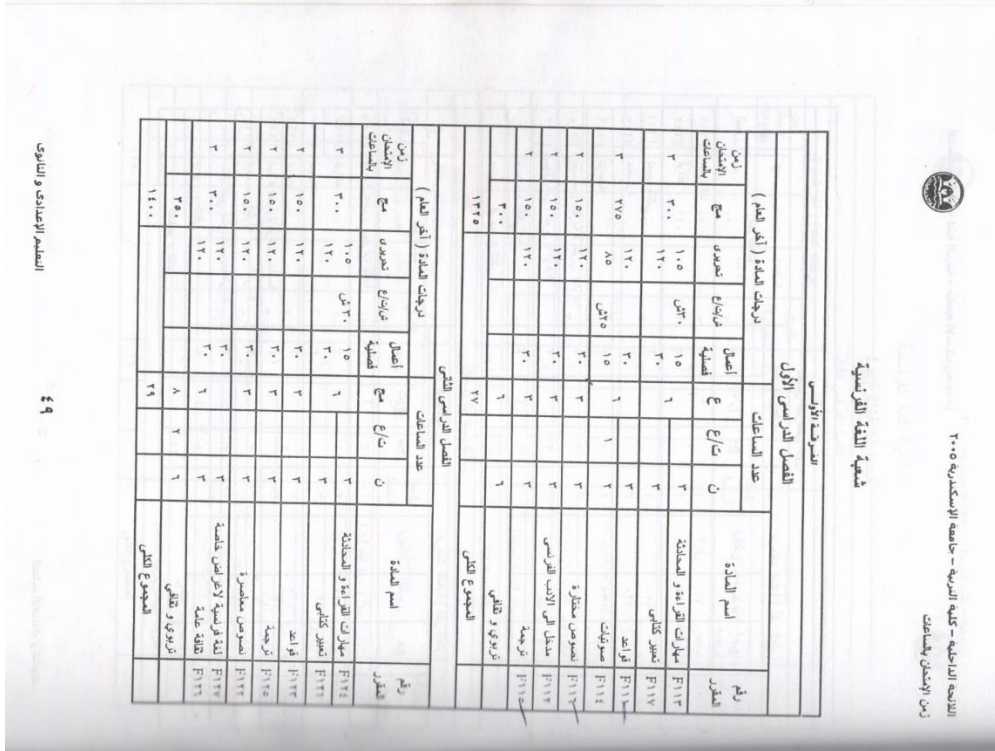 اللائحة الداخلية – كلية التربية – جامعة الإسكندرية ٢٠٠٥
زمن الإمتحان بالساعات
شعبة اللغة الفرنسية
الفرقة الأولى
الفصل الدراسى الأول
رقم المقرر اسم المادة عدد الساعات درجات المادة ( آخر العام ) زمن الإمتحان بالساعات
ن ت/ع ع أعمال فصلية ش/ت/ع تحريرى مج
F١١٣ مهارات القراءة و المحادثة ٣ ٦ ١٥ ٣٠ش ١٠٥ ٣٠٠ ٣
F١١٧ تعبير كتابى ٣ ٣٠ ١٢٠
F١١١ قواعد ٣ ٦ ٣٠ ١٢٠ ٢٧٥ ٣
F١١٤ صوتيات ٢ ١ ١٥ ٢٥ش ٨٥
F١١٦ نصوص مختارة ٣ ٣ ٣٠ ١٢٠ ١٥٠ ٢
F١١٢ مدخل الى الادب الفرنسى ٣ ٣ ٣٠ ١٢٠ ١٥٠ ٢
F١١٥ ترجمة ٣ ٣ ٣٠ ١٢٠ ١٥٠ ٢
تربوي و ثقافي ٦ ٦ ٣٠٠
المجموع الكلى ٢٧ ١٣٢٥
الفصل الدراسى الثانى
رقم المقرر اسم المادة عدد الساعات درجات المادة ( آخر العام ) زمن الإمتحان بالساعات
ن ت/ع مج أعمال فصلية ش/ت/ع تحريرى مج
F١٢٤ مهارات القراءة و المحادثة ٣ ٦ ١٥ ٣٠ش ١٠٥ ٣٠٠ ٣
F١٢١ تعبير كتابى ٣ ٣٠ ١٢٠
F١٢٣ قواعد ٣ ٣ ٣٠ ١٢٠ ١٥٠ ٢
F١٢٥ ترجمة ٣ ٣ ٣٠ ١٢٠ ١٥٠ ٢
F١٢٢ نصوص معاصرة ٣ ٣ ٣٠ ١٢٠ ١٥٠ ٢
F١٢٧ لغة فرنسية لاغراض خاصة ٣ ٦ ٣٠ ١٢٠ ٣٠٠ ٣
F١٢٦ ثقافة عامة ٣ ٣٠ ١٢٠
تربوي و ثقافي ٦ ٢ ٨ ٣٥٠
المجموع الكلى ٢٩ ١٤٠٠
التعليم الإعدادى و الثانوى
٤٩